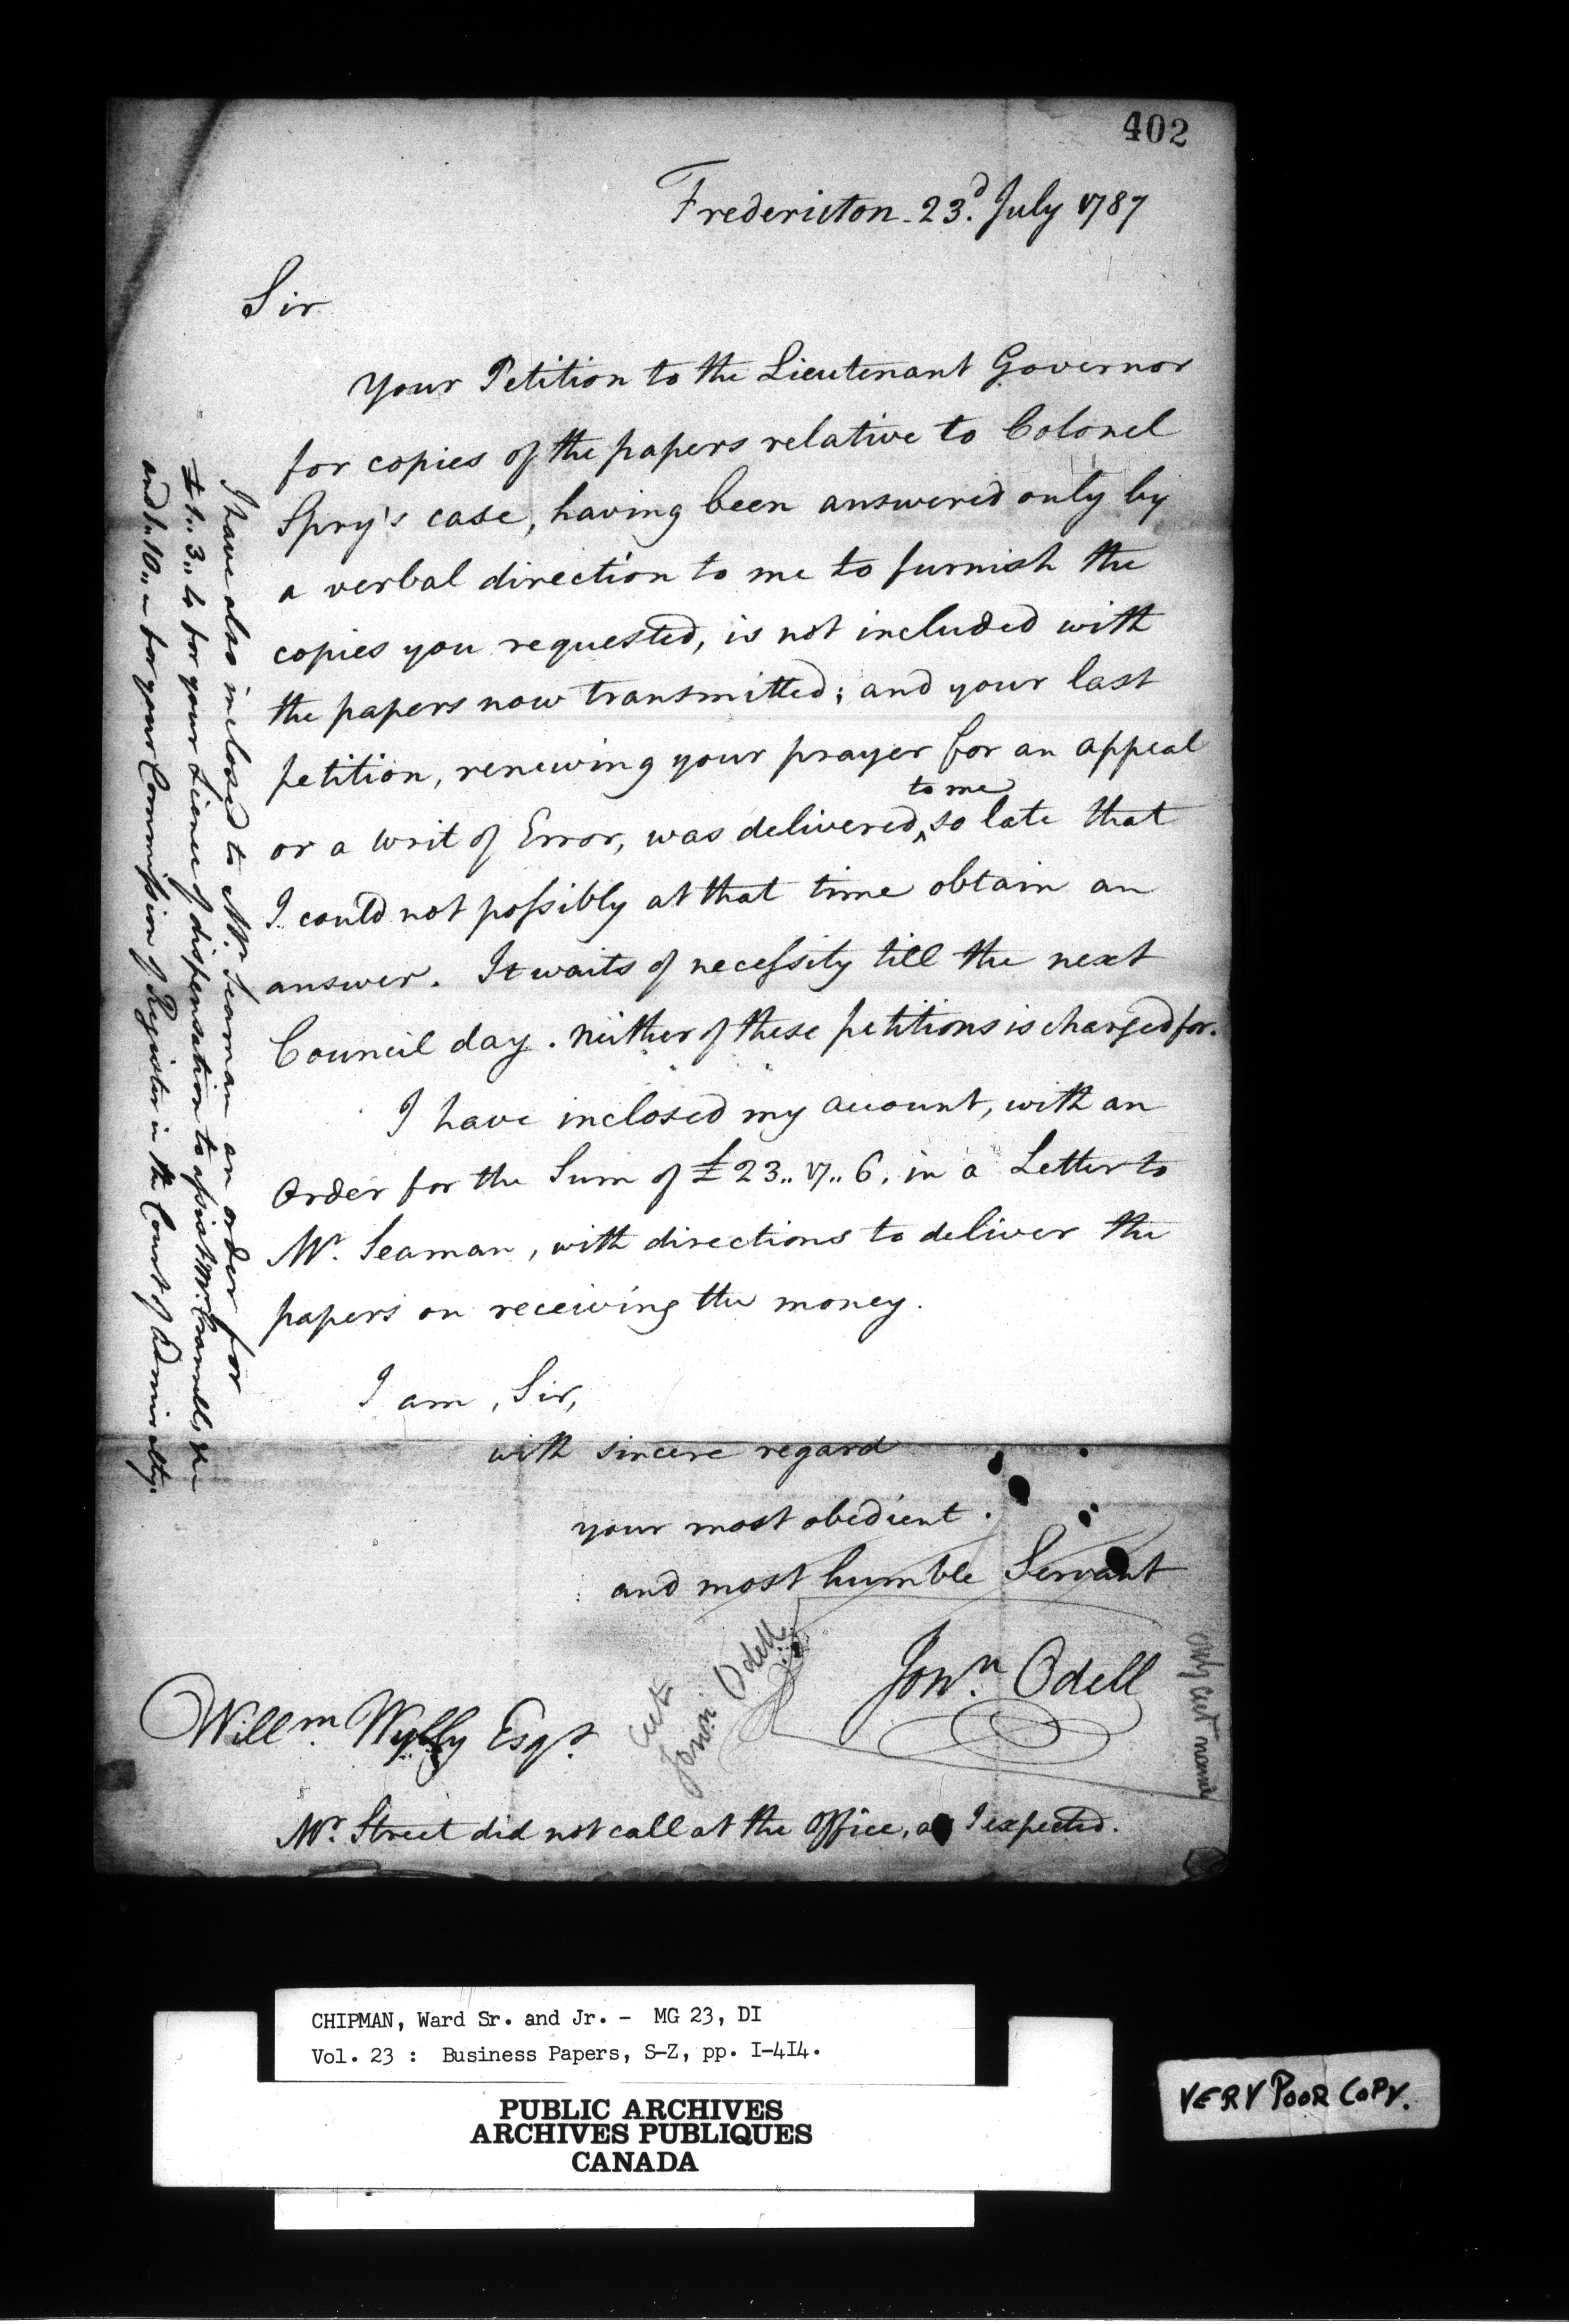 402
Fredericton 23.d July 1787
Sir
Your Petition to the Lieutenant Governor
for copies of the papers relative to Colonel
Spry's case, having been answered only by
a verbal direction to me to furnish the
copies you requested, is not included with
the papers now transmitted; and your last
petition, renewing your prayer for an appeal
to me
or a Writ of Error, was delivered ‸ so late that
I could not possibly at that time obtain an
answer. It waits of necessity till the next
Council day. Neither of these petitions is charged for.
I have inclosed my account, with an
Order for the Sum of £23..7..6, in a Letter to
Mr. Seaman, with directions to deliver the
papers on receiving the money.
I am, Sir,
with sincere regard
your most obedient
and most humble Servant
Jon.n Odell
Will.m Wylly Esqr.
Mr. Street did not call at the Office, as I expected.
I have also inclosed to Mr. Seaman an order for
for your Licence of dispensation to assist Mr. Crannell, the
and for your Commission of Register in the Court of Admiralty.
cut
Odell
only cut name
CHIPMAN, Ward Sr. and Jr. - MG 23, DI
Vol. 23 : Business Papers, S-Z, pp. I-4I4.
PUBLIC ARCHIVES
ARCHIVES PUBLIQUES
CANADA
VERY POOR COPY.